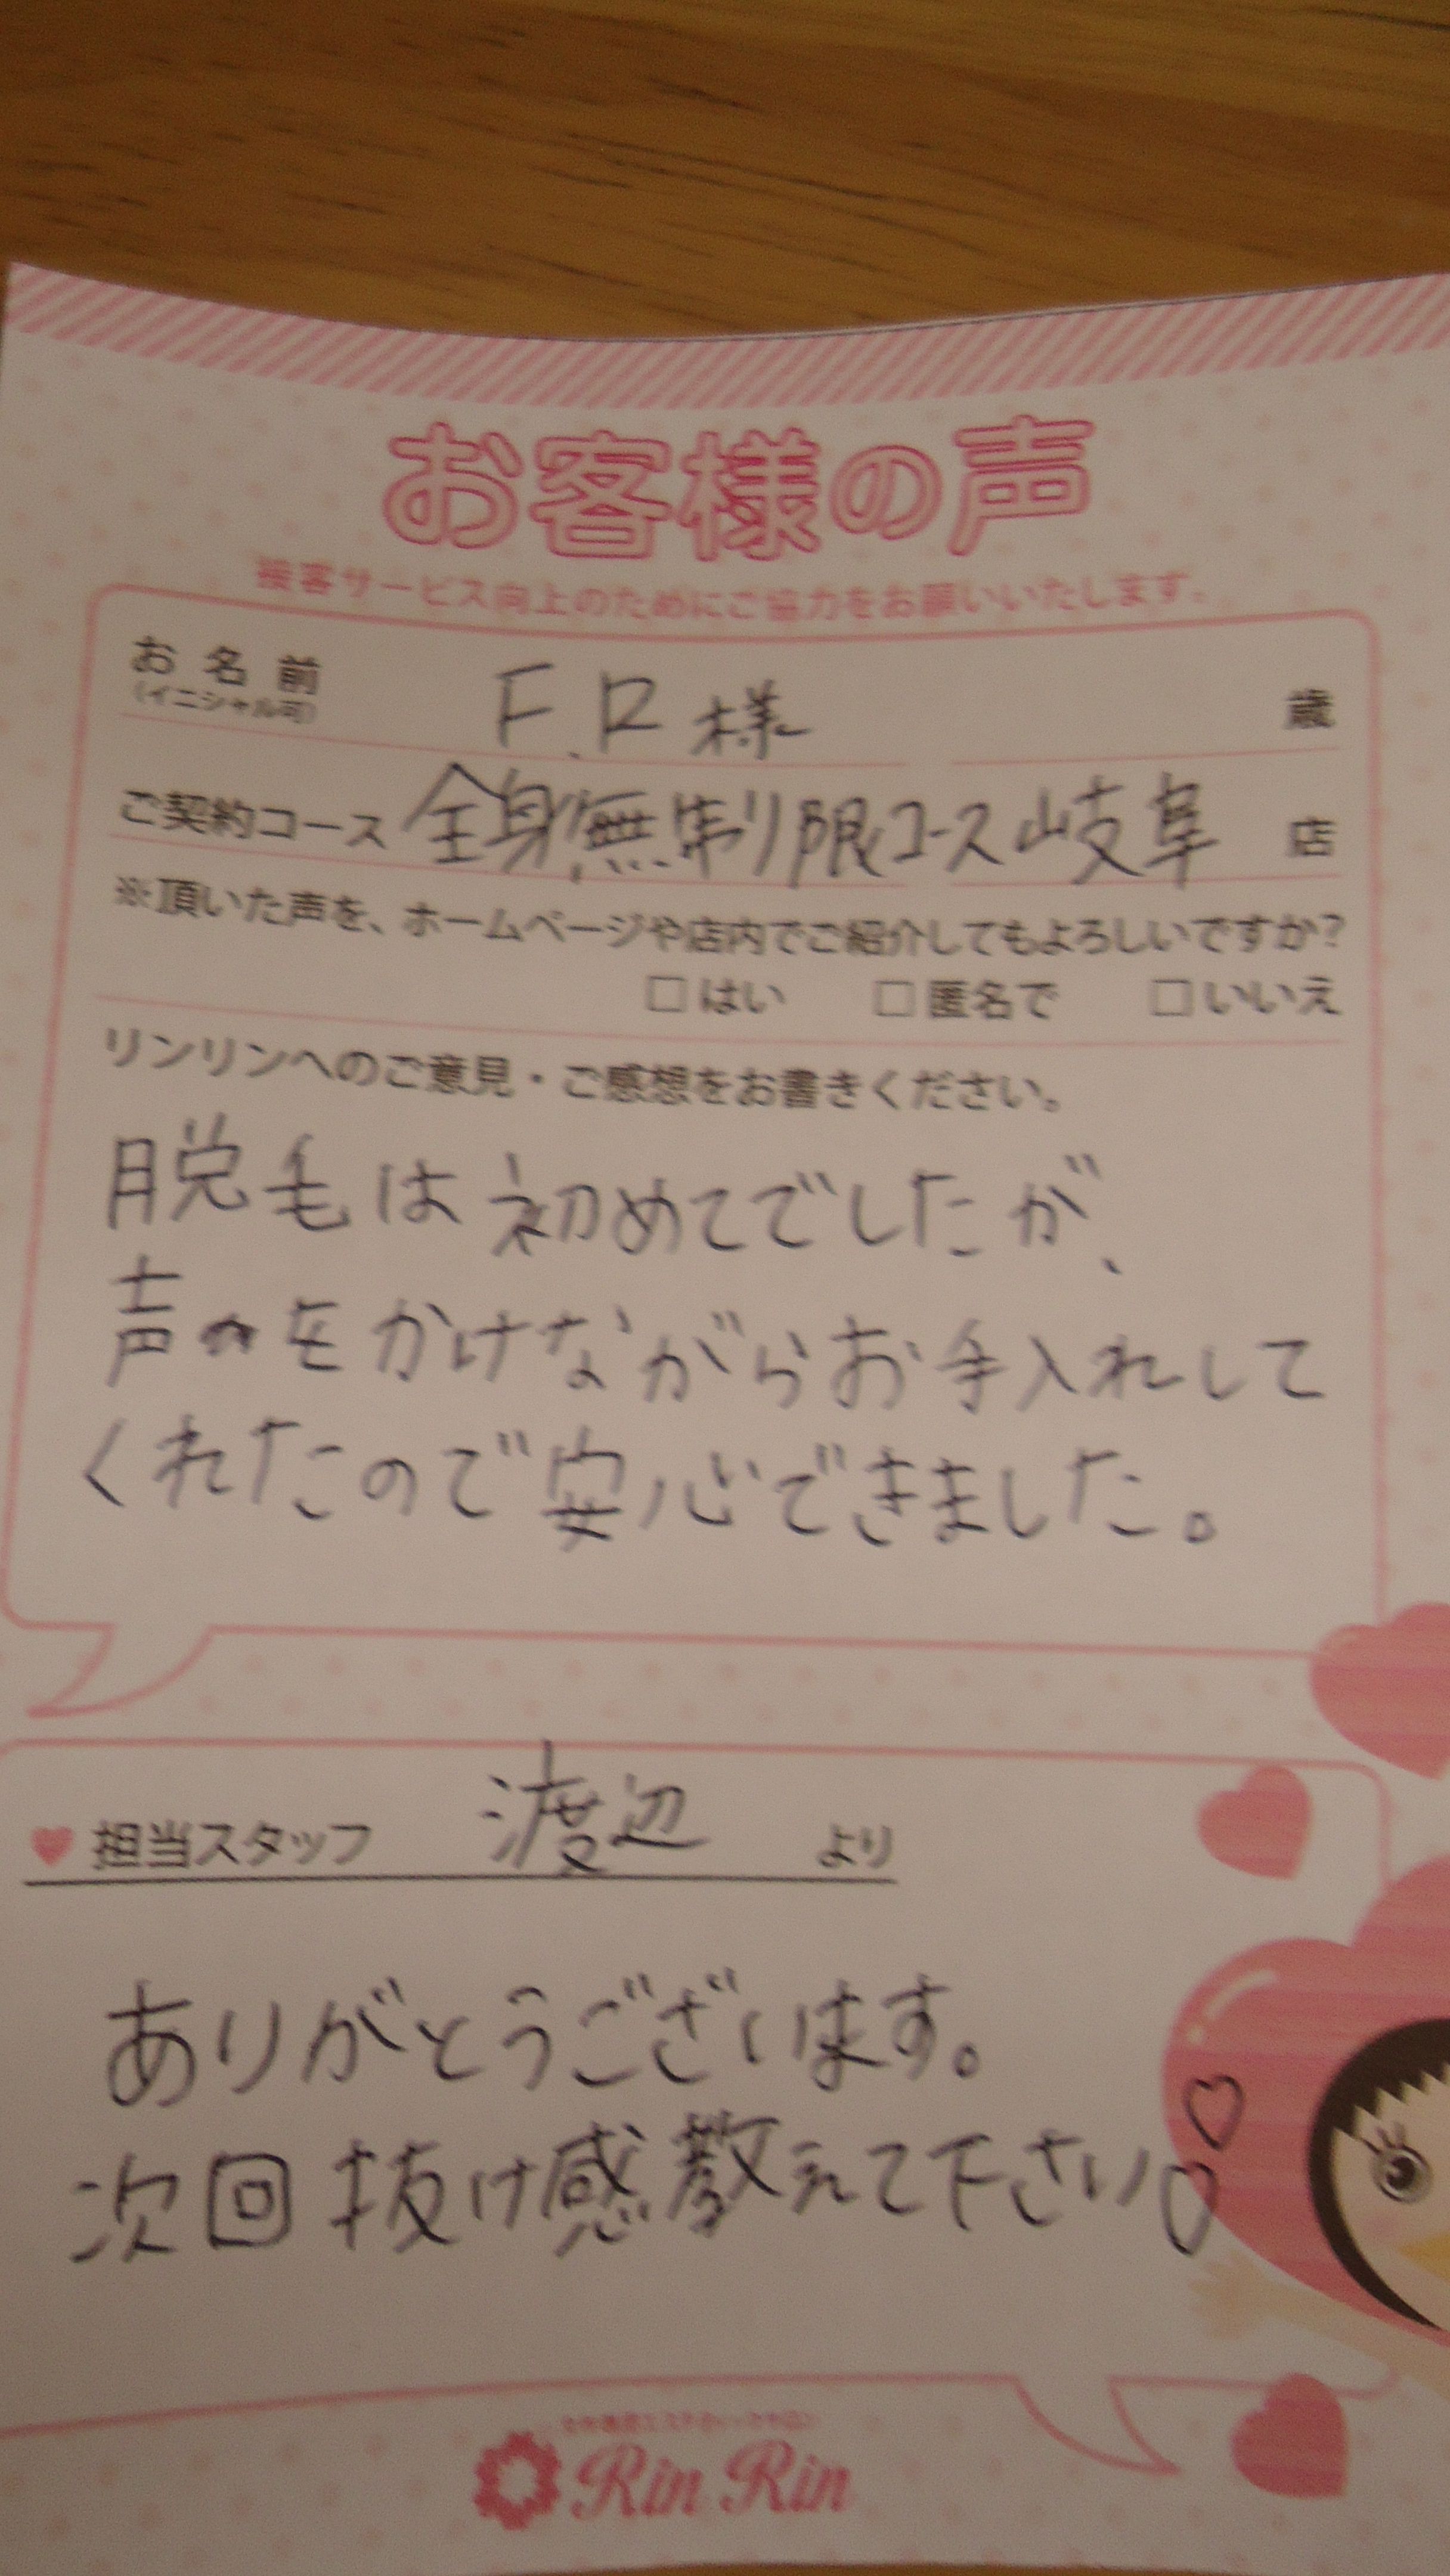 お客様の声
接客サービス向上のためにご協力をお願いいたします。
お名前 F.R様 歳
(イニシャル可)
ご契約コース 全身無制限コース 岐阜 店
※頂いた声を、ホームページや店内でご紹介してもよろしいですか?
□はい □匿名で □いいえ
リンリンへのご意見・ご感想をお書きください。
脱毛は初めてでしたが、
声をかけながらお手入れして
くれたので安心できました。
♥担当スタッフ 渡辺 より
ありがとうございます。
次回抜け感教えて下さい♡
Rin Rin